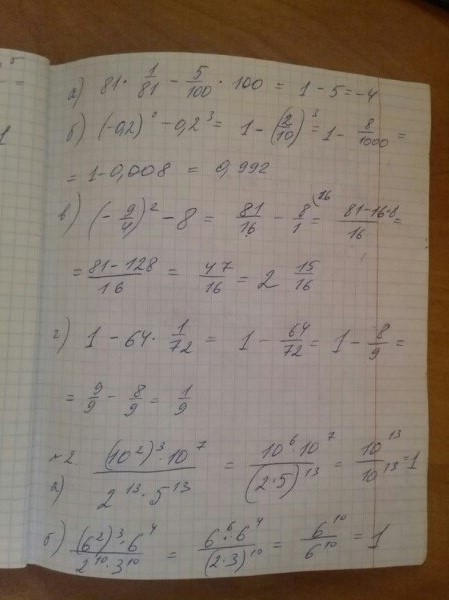 а) 81 · 1/81 − 5/100 · 100 = 1 − 5 = −4
б) (−0,2)⁰ − 0,2³ = 1 − (2/10)³ = 1 − 8/1000 =
= 1 − 0,008 = 0,992
в) (−9/4)² − 8 = 81/16 − 8/1 (16 = 81−16·8/16 =
= 81−128/16 = 47/16 = 2 15/16
г) 1 − 64 · 1/72 = 1 − 64/72 = 1 − 8/9 =
= 9/9 − 8/9 = 1/9
№2
а) (10²)³ · 10⁷ / 2¹³ · 5¹³ = 10⁶ · 10⁷ / (2·5)¹³ = 10¹³ / 10¹³ = 1
б) (6²)³ · 6⁴ / 2¹⁰ · 3¹⁰ = 6⁶ · 6⁴ / (2·3)¹⁰ = 6¹⁰ / 6¹⁰ = 1